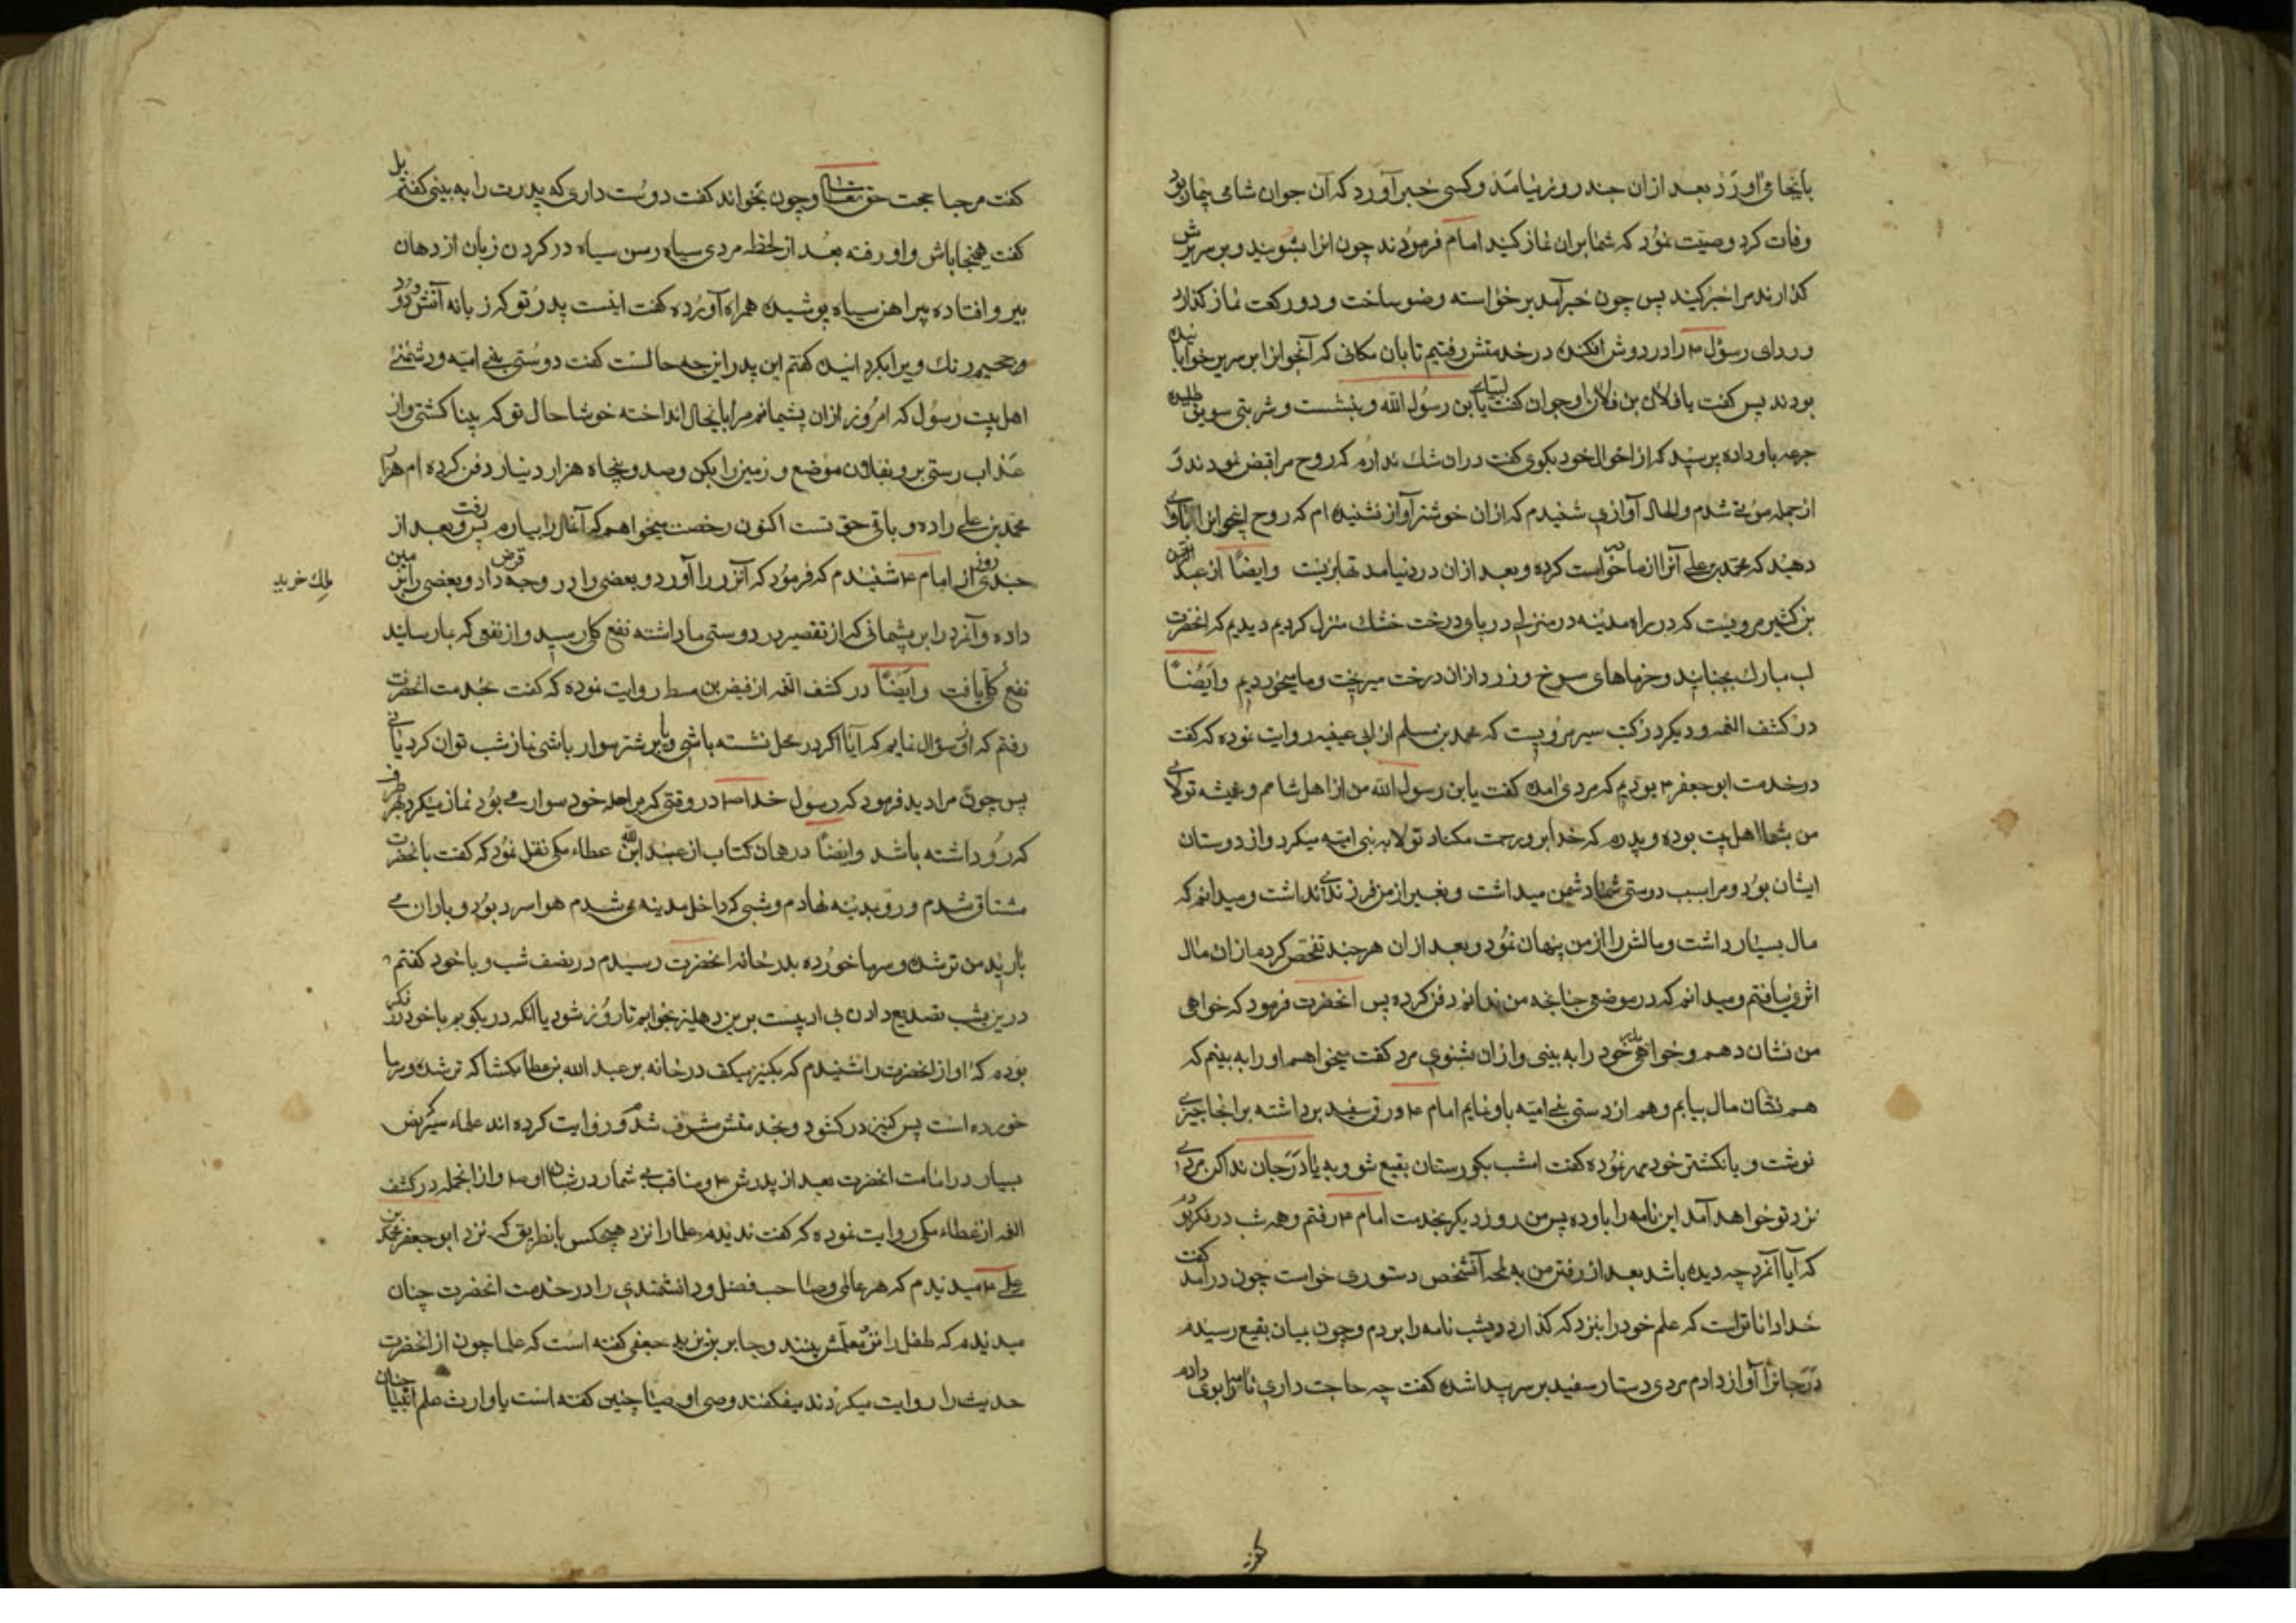 باینجا می آورد بعد ازان چند روز نیامد و کسی خبر آورد که آن جوان شامی بیمار بود
وفات کرد وصیت نمود که شما بران نماز کنید امام فرمودند چون انرا بشویند و بر سریرش
کذارند مرا خبر کنید پس چون خبر آمد برخواسته وضو ساخت و دو رکعت نماز کذارد
و ردای رسول ۴ را در دوش افکند در خدمتش رفتیم تا بان مکانی که آنجوانرا بر سریر خوابانیده
بودند پس کفت یا فلان بن فلان او جوان کفت لبیک یا بن رسول الله و بنشست و شربتی سویق طلبیده
جرعه باو داده پرسید که از احوال خود بکوی کفت دران شک ندارم که روح مرا قبض نمودند و
از جمله موتی شدم والحال آوازی شنیدم که ازان خوشتر آواز نشنیده ام که روح اینجوانرا باو
دهید که محمد بن علی آنرا از ما خواست کرده و بعد ازان در دنیا مد تها بزیست وایضاً از عبد
بن کثیر مرویست که در راه مدینه در منزلی در پای درخت خشک منزل کردیم دیدیم که انحضرت
لب مبارک بجنبانید و خرماهای سرخ و زرد ازان درخت میریخت و ما میخوردیم وایضاً
در کشف الغمه و دیکر در کتب سیر مرویست که محمد بن مسلم از ابی عیینه روایت نموده که کفت
در خدمت ابو جعفر ۴ بودیم که مردی آمده کفت یا بن رسول الله من از اهل شامم و همیشه تولای
من بشما اهل بیت بوده و پدرم که خدا برو رحمت مکناد تولا به بنی امیه میکرد و از دوستان
ایشان بود و مرا بسبب دوستی شما دشمن میداشت و بغیر از من فرزندی نداشت و میدانم که
مال بسیار داشت و مالش را از من پنهان نمود و بعد ازان هر چند تفحص کردم ازان مال
اثری نیافتم و میدانم که در موضعی چنانچه من ندانم دفن کرده پس انحضرت فرمود که خواهی
من نشان دهم و خواهی پدر خود را به بینی و ازان بشنوی مرد کفت میخواهم او را به بینم که
هم نشان مال بیابم و هم از دستی بنی امیه باو نمایم امام ۴ ورق سفید برداشته بر انجا چیزی
نوشت و بانکشتر خود مهر نموده کفت امشب بکورستان بقیع شو و به یا درجان ندا کن مردی
نزد تو خواهد آمد این نامه را باو ده پس من روز دیکر بخدمت امام ۴ رفتم و همه شب در فکر بودم
که آیا آنمرد چه دیده باشد بعد از رفتن من به لمحه آنشخص دستوری خواست چون درآمد کفت
خدا داناتراست که علم خود را بنزد که کذارد دیشب نامه را بردم و چون بمیان بقیع رسیدم
درجانرا آواز دادم مردی دستار سفید بر سر پیدا شده کفت چه حاجت داری نامرا بوی دادم
کفت مرحبا حجت حق تعالی و چون بخواند کفت دوست داری که پدرت را به بینی کفتم بلی
کفت همینجا باش و او رفته بعد از لحظه مردی سیاه رسن سیاه در کردن زبان از دهان
بیرو افتاده پیراهن سیاه پوشیده همراه آورده کفت اینست پدر تو که زبانه آتش و دود
و جحیم رنک ویرا بکردانیده کفتم این پدر این چه حالست کفت دوستی بنی امیه و دشمنی
اهل بیت رسول که امروز ازان پشیمانم مرا باینحال انداخته خوشا حال تو که بینا کشتی و از
عذاب رستی برو بفلان موضع و زمین را بکن و صد و پنجاه هزار دینار دفن کرده ام هزار
محمد بن علی را ده و باقی حق تست اکنون رخصت میخواهم که آنمال را بیارم پس رفت و بعد از
چندی روز از امام ۴ شنیدم که فرمود که آنزر را آورد و بعضی را در وجه قرض داد و بعضی را بزمین
ملک خرید
داده و آنمرد را بر پشیمانی که از تقصیر در دوستی ما داشته نفع کلی رسید و از نفعی که بما رسانید
نفع کلی یافت وایضاً در کشف الغمه از فیض بن مطر روایت نموده که کفت بخدمت انحضرت
رفتم که ازو سؤال نمایم که آیا اکر در محل نشسته باشی و یا بر شتر سوار باشی نماز شب توان کرد یا نی
پس چون مرا دید فرمود که رسول خدا ص در وقتی که بر راحله خود سوار می بود نماز میکرد بهر طرف
که رو داشته باشد وایضاً در همان کتاب از عبد الله ابن عطاء مکی نقل نمود که کفت بانحضرت
مشتاق شدم و رو بمدینه نهادم و شبی که داخل مدینه می شدم هوا سرد بود و باران می
بارید من تر شده و سرما خورده بدر خانه انحضرت رسیدم در نصف شب و با خود کفتم
درین شب تصدیع دادن بی ادبیست برین دهلیز بخوابم تا روز شود یا انکه در بکوبم با خود در فکر
بودم که اواز انحضرت را شنیدم که بکنیز میکفت در خانه بر عبد الله بن عطا بکشا که تر شده و سرما
خورده است پس کنیز در کشود و بخدمتش مشرف شدم و روایت کرده اند علماء سیر نص
بسیار در امامت انحضرت بعد از پدرش ۴ و مناقب بی شمار در شان او ۴ و از انجمله در کشف
الغمه از عطاء مکی روایت نموده که کفت ندیدم علما را نزد هیچکس بانطریق که نزد ابو جعفر محمد بن
علی ۴ میدیدم که هر عالمی و صاحب فضل و دانشمندی را در خدمت انحضرت چنان
میدیدم که طفل را نزد معلمش بینند و جابر بن یزید جعفی کفته است که علما چون از انحضرت
حدیث را روایت میکردند میفکفتند وصی اوصیا چنین کفته است یا وارث علم انبیا چنان